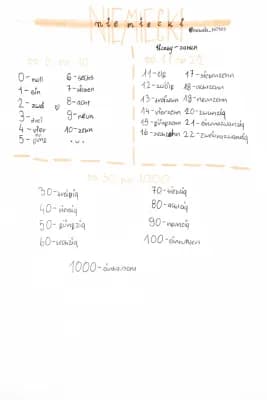 NIEMIECKI
niemiecki
liczby - zahlen
od 0 do 10
od 11 do 22
0 - null
1 - ein
2 - zwei
3 - drei
4 - vier
5 - fünf
6 - sechs
7 - sieben
8 - acht
9 - neun
10 - zehn
11 - elf
12 - zwölf
13 - dreizehn
14 - vierzehn
15 - fünfzehn
16 - sechzehn
17 - siebzehn
18 - achtzehn
19 - neunzehn
20 - zwanzig
21 - einundzwanzig
22 - zweiundzwanzig
od 30 do 1000
30 - dreißig
40 - vierzig
50 - fünfzig
60 - sechzig
70 - siebzig
80 - achtzig
90 - neunzig
100 - einhundert
1000 - eintausend